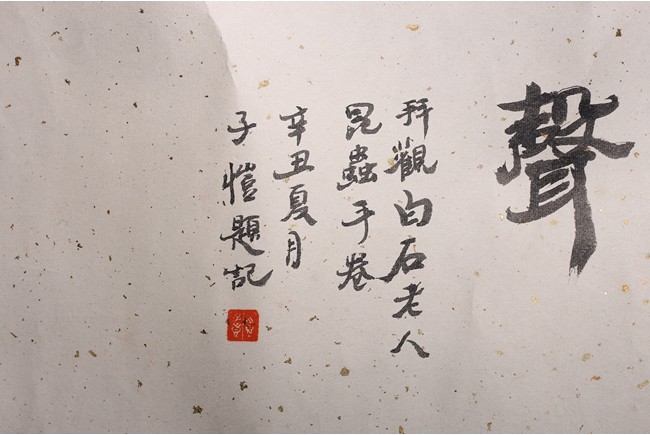 聲
拜觀白石老人
昆蟲手卷
辛丑夏月
子愷題記